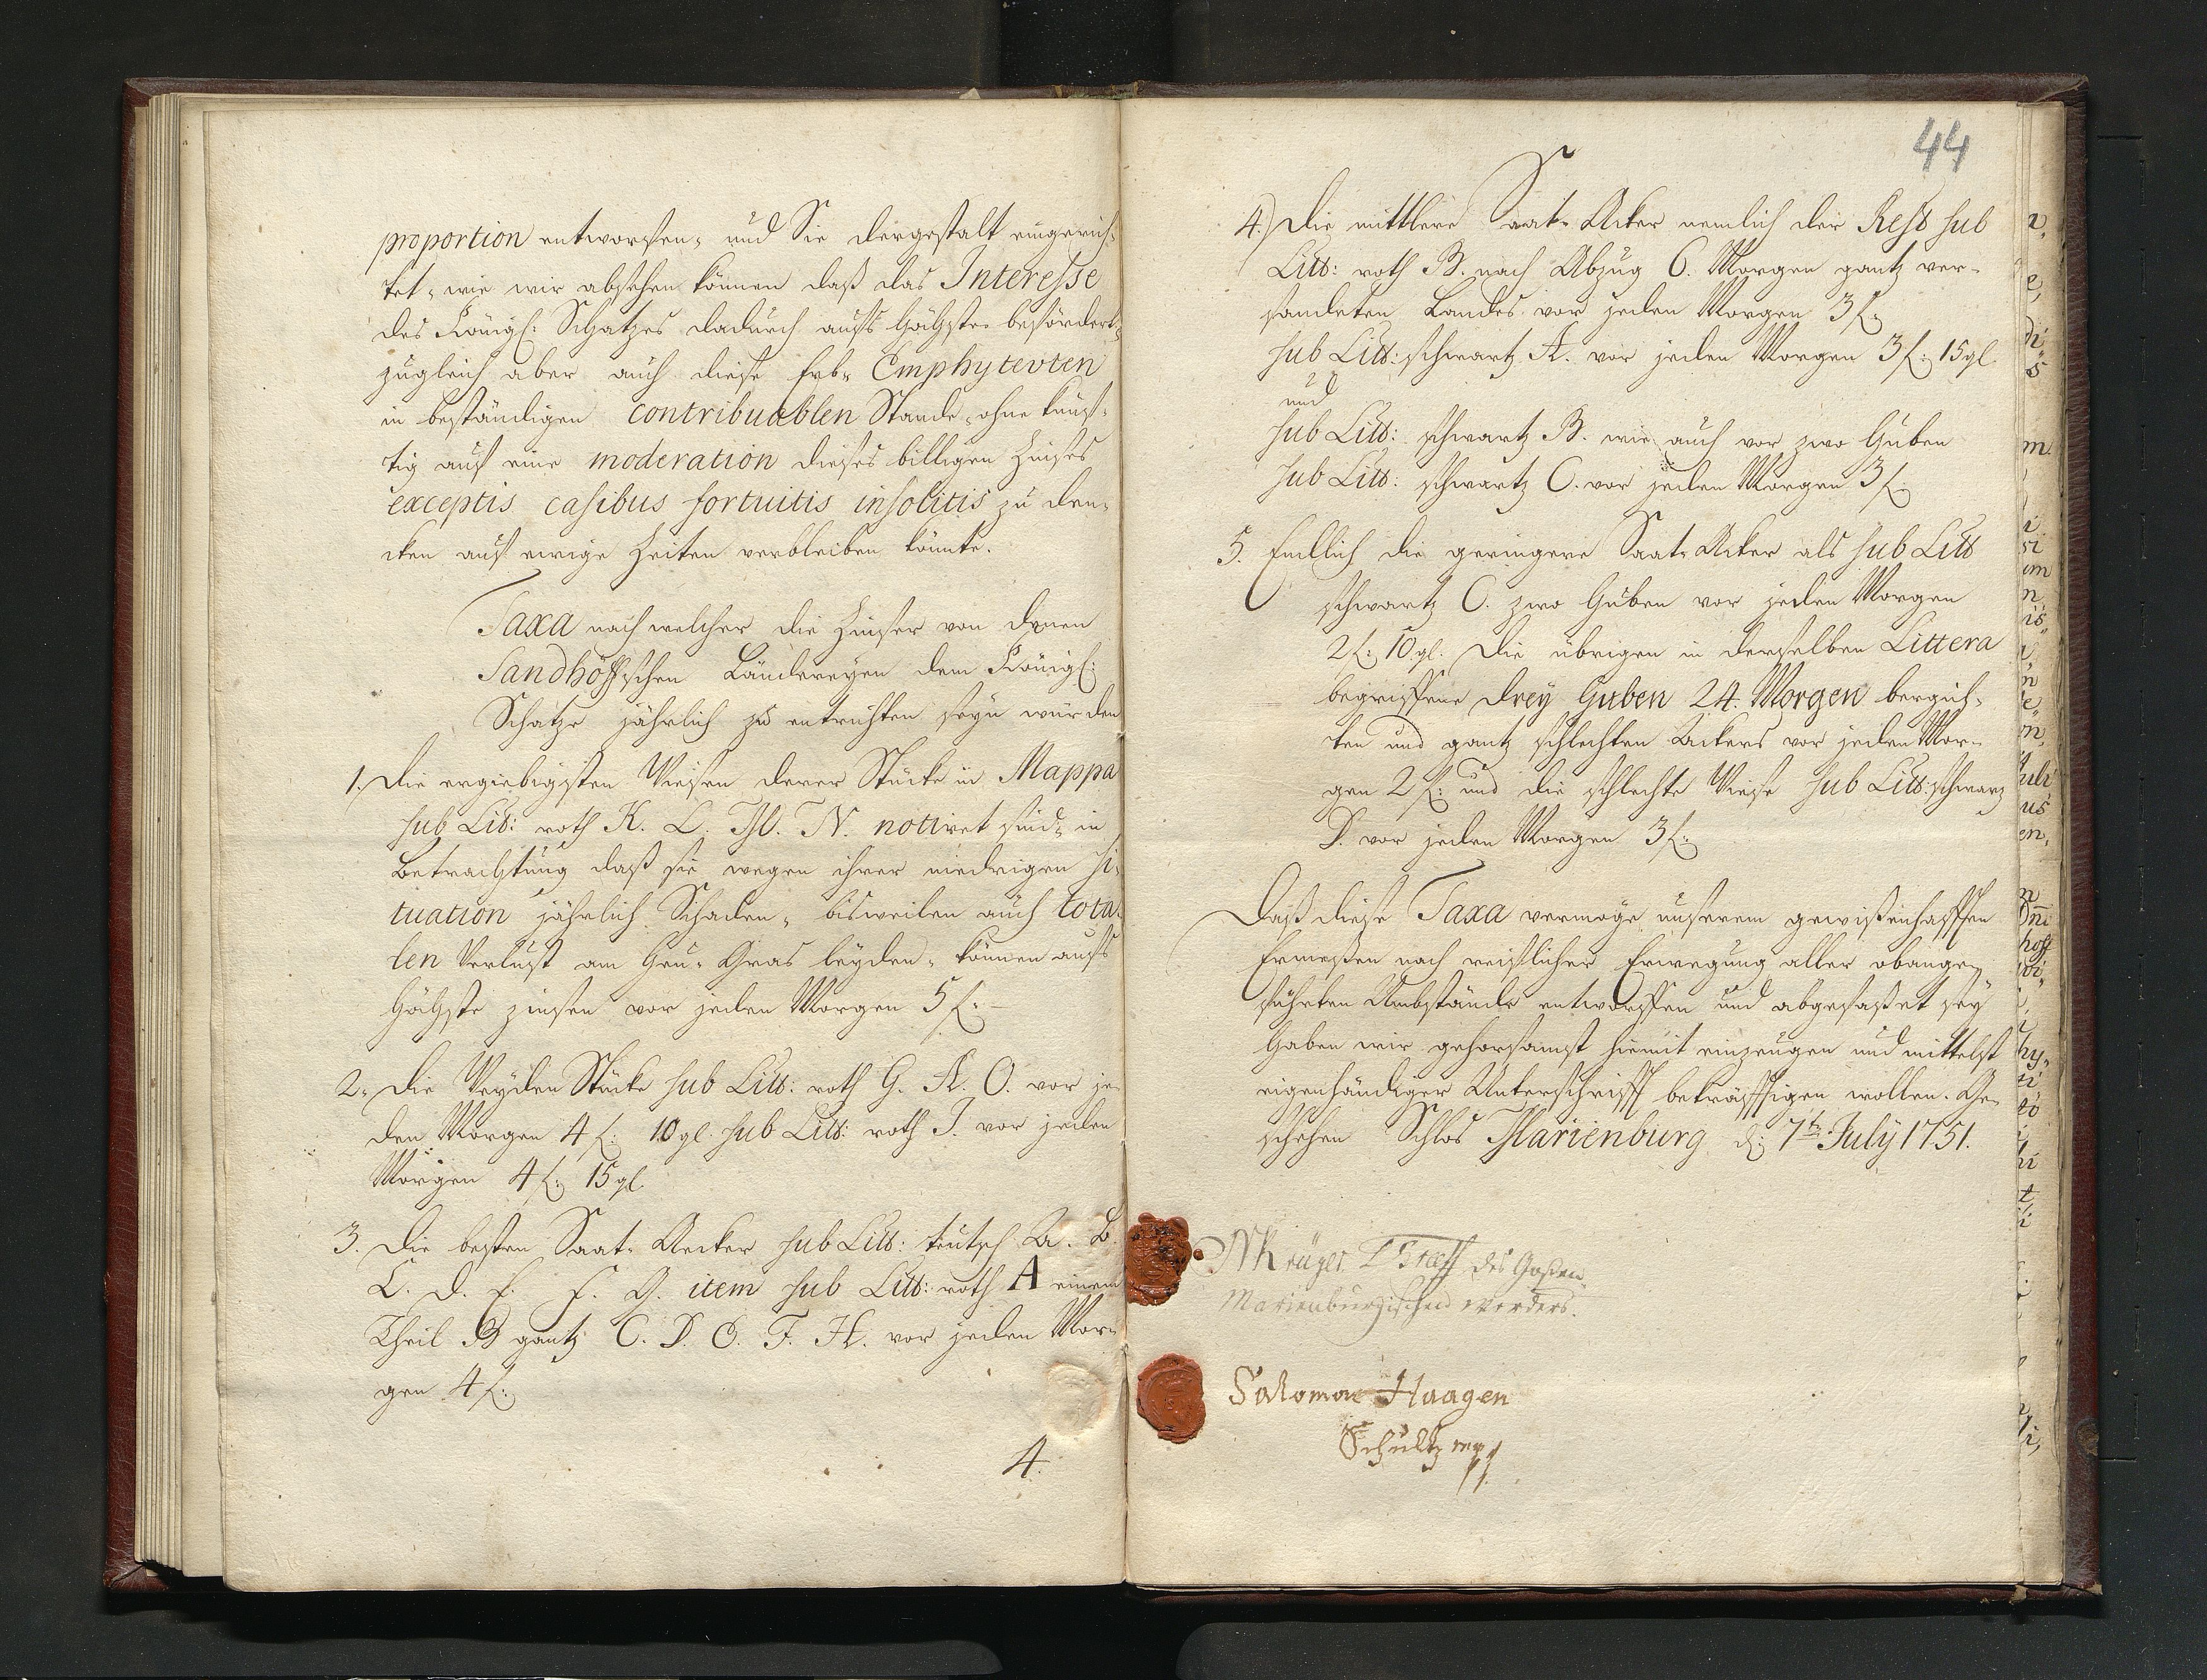 proportion entworffen, und Sie dergestalt eingerich-
tet, wie wir absehen können daß das Interesse
des Königl: Schatzes dadurch aufs höchste befördert,
zugleich aber auch diese Erb- Emphytevten
in beständigen contribuablen Stande, ohne künf-
tig auf eine moderation dieses billigen Zinses
exceptis casibus fortuitis insolitis zu den-
cken auf ewige Zeiten verbleiben könnte.
Taxa nach welcher die Zinser von denen
Sandhöffschen Ländereyen dem Königl:
Schatze jährlich zu entrichten seyn würden
1. Die ergiebigsten Wiesen derer Stücke in Mappa
sub Lit: roth K. L. M. N. notiret sind, in
Betrachtung daß sie wegen ihrer niedrigen si-
tuation jährlich Schaden, bisweilen auch tota-
len Verlust am Heu-Gras leyden, können aufs
höchste zinsen vor jeden Morgen 5 f: –
2. Die Weyden Stücke sub Litt: roth G. A. O. vor je-
den Morgen 4 f: 10 gl. sub Litt: roth I. vor jeden
Morgen 4 f: 15 gl.
3. Die besten Saat-Aecker sub Litt: teutsch A. B.
C. D. E. F. G. item sub Litt: roth A einem
Theil B gantz C. D. E. F. H. vor jeden Mor-
gen 4 f:
4.
44
4.) Die mittlere Saat-Acker nemlich der Rest sub
Litt: roth B. nach Abzug 6. Morgen gantz ver-
sandeten Landes vor jeden Morgen 3 f:
sub Litt: schwartz A. vor jeden Morgen 3 f: 15 gl.
und
sub Litt: schwartz B. wie auch vor zwo Huben
sub Litt: schwartz C. vor jeden Morgen 3 f:
5. Endlich die geringere Saat-Acker als sub Litt
schwartz C. zwo Huben vor jeden Morgen
2 f: 10 gl. Die übrigen in derselben Littera
begriffene drey Huben 24. Morgen bergich-
ten und gantz schlechten Ackers vor jeden Mor-
gen 2 f: und die schlechte Wiese sub Litt: schwarz
D. vor jeden Morgen 3 f:
Daß diese Taxa vermöge unserem gewißenhafften
Ermeßen nach reifflicher Erwegung aller obange-
führten Umbstände entworffen und abgefaßet sey
haben wir gehorsamst hiemit einzeugen und mittelst
eigenhändiger Unterschrifft bekräfftigen wollen. Ge-
schehen Schlos Marienburg d: 7ten July 1751.
Krüger des Großen
Marienburgischen Werders.
Salomon Haagen
Schultz mp